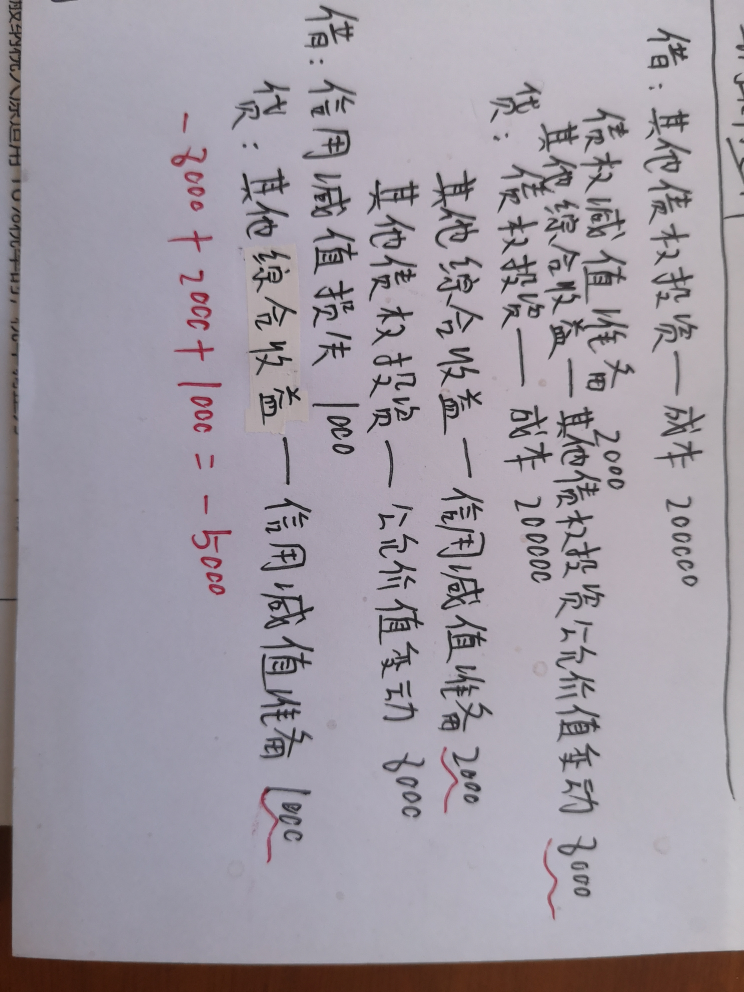 借：其他债权投资—成本 200000
债权减值准备 2000
其他综合收益—其他债权投资公允价值变动 8000
贷：债权投资—成本 200000
其他综合收益—信用减值准备 2000
其他债权投资—公允价值变动 8000
借：信用减值损失 1000
贷：其他综合收益—信用减值准备 1000
-8000+2000+1000=-5000